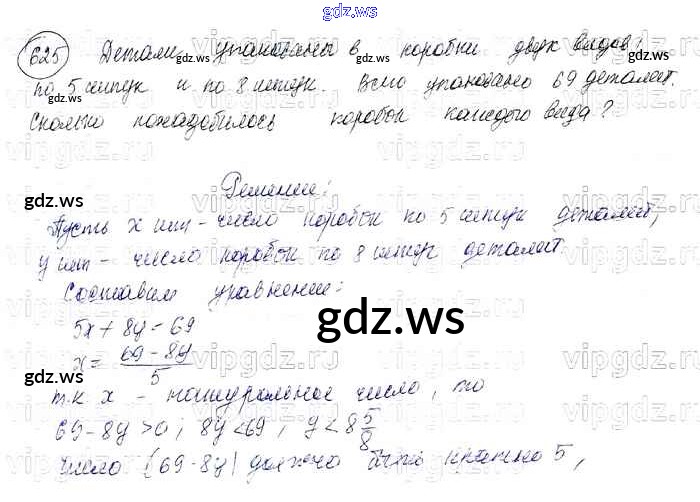 gdz.ws
625 Детали упакованы в коробки двух видов:
по 5 штук и по 8 штук. Всего упаковано 69 деталей.
Сколько понадобилось коробок каждого вида?
gdz.ws
gdz.ws
Решение:
Пусть x шт - число коробок по 5 штук деталей,
y шт - число коробок по 8 штук деталей
Составим уравнение:
gdz.ws
5x + 8y = 69
x = (69 - 8y)/5
т.к x - натуральное число, то
69 - 8y > 0; 8y < 69; y < 8 5/8
число (69 - 8y) должно быть кратно 5,
gdz.ws
gdz.ws